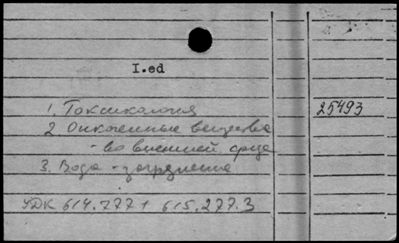 I.ed
1. Токсикология 25493
2. Онкогенные вещества
- во внешней среде
3. Вода - загрязнение
УДК 614.777 + 615.277.3